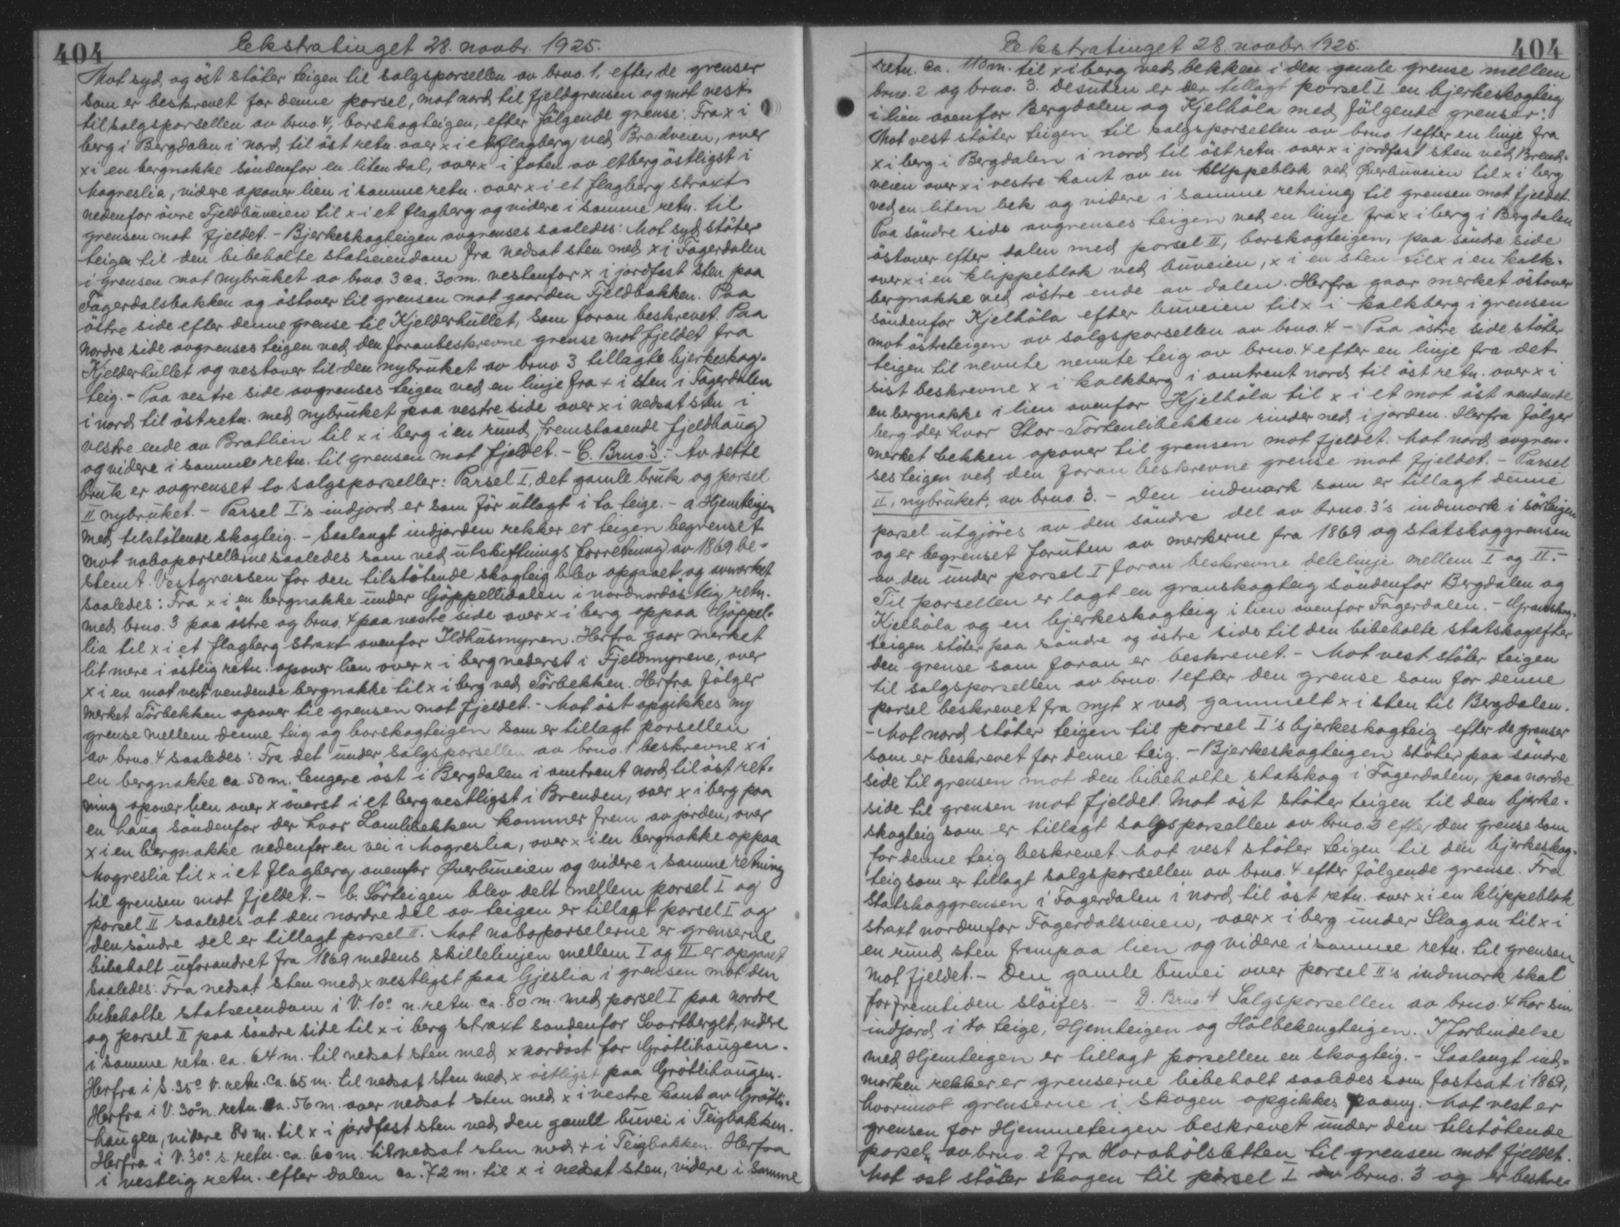 404
Ekstratinget 28. novbr. 1925.
Mot syd og öst stöter teigen til salgsporsellen av brno. 1, efter de grenser
som er beskrevet for denne porsel, mot nord til fjeldgrensen og mot vest
til salgsporsellen av brno. 4, borskogteigen, efter følgende grense: Fra x i
berg i Bergdalen i nord til öst retn. over x i et flagberg ved Bradveien, over
x i en bergnakke söndenfor en liten dal, over x i foten av et berg östligst i
Mogreslia, videre opover lien i samme retn. over x i et flagberg straxt
nedenfor övre Fjeldbuveien til x i et flagberg og videre i samme retn. til
grensen mot fjeldet. - Bjerkeskogteigen avgrenses saaledes: Mot syd stöter
teigen til den bibeholte statseiendom fra nedsat sten med x i Fagerdalen
i grensen mot nybruket av brno. 3 ca. 30 m. vestenfor x i jordfast sten paa
Fagerdalsbakken og östover til grensen mot gaarden Fjeldbakken. Paa
östre side efter denne grense til Kjelderhullet, som foran beskrevet. Paa
nordre side avgrenses teigen ved den foranbeskrevne grense mot fjeldet fra
Kjelderhullet og vestover til den nybruket av brno 3 tillagte bjerkeskog-
teig. - Paa vestre side avgrenses teigen ved en linje fra x i sten i Fagerdalen
i nord til öst retn. med nybruket paa vestre side over x i nedsat sten i
vestre ende av Bratlien til x i berg i en rund fremstaaende fjeldhaug
og videre i samme retn. til grensen mot fjeldet. - C. Brno. 3. - Av dette
bruk er avgrenset to salgsporseller: Parsel I, det gamle bruk og porsel
II nybruket. - Parsel I's indjord er som för utlagt i to teige. - a Hjemteigen
med tilstötende skogteig. - Saalangt indjorden rekker er teigen begrenset
mot naboporsellerne saaledes som ved utskiftningsforretning av 1869 be-
stemt. Vestgrensen for den tilstötende skogteig blev opgaaet og avmerket
saaledes: Fra x i en bergnakke under Göppellidalen i nordnordöstlig retn.
med brno. 3 paa östre og brno. 4 paa vestre side over x i berg oppaa Göppel-
lia til x i et flagberg straxt ovenfor Ildhusmyren. Herfra gaar merket
litt mere i östlig retn. opover lien over x i berg nederst i Fjeldmyrene, over
x i en mot vest vendende bergnakke til x i berg ved Törbekken. Herfra fölger
merket Törbekken opover til grensen mot fjeldet. - Mot öst opgikkes ny
grense mellem denne teig og borskogteigen som er tillagt porsellen
av brno. 4 saaledes: Fra det under salgsporsellen av brno. 1 beskrevne x i
en bergnakke ca 50 m. lengere öst i Bergdalen i omtrent nord til öst ret-
ning opover lien over x överst i et berg vestligst i Brenden, over x i berg paa
en haug söndenfor der hvor Lomlibekken kommer frem av jorden, over
x i en bergnakke nedenfor en vei i Mogreslia, over x i en bergnakke oppaa
Mogreslia til x i et flagberg ovenfor Överbuveien og videre i samme retning
til grensen mot fjeldet. - b. Sörteigen blev delt mellem porsel I og
porsel II saaledes at den nordre del av teigen er tillagt porsel I og
den söndre del er tillagt porsel II. Mot naboporselerne er grenserne
bibeholt uforandret fra 1869 medens skillelinjen mellem I og II er opgaaet
saaledes: Fra nedsat sten med x vestligst paa Gjeslia i grensen mot den
bibeholte statseiendom i V. 10° n. retn. ca. 80 m. med porsel I paa nordre
og porsel II paa söndre side til x i berg straxt söndenfor Svartberget, videre
i samme retn. ca. 64 m. til nedsat sten med x nordöst for Grötlihaugen.
Herfra i S. 35° V. retn. ca. 65 m. til nedsat sten med x östligst paa Grötlihaugen.
Herfra i V. 30° n. retn. ca. 56 m. over nedsat sten med x i vestre kant av Grötli-
haugen, videre 80 m. til x i jordfast sten ved den gamle buvei i Teigbakken.
Herfra i V. 30° s. retn. ca. 60 m. til nedsat sten med x i Teigbakken. Herfra
i vestlig retn. efter dalen ca. 72 m. til x i nedsat sten, videre i samme
404
Ekstratinget 28. novbr. 1925.
retn. ca. 110 m. til x i berg ved bekken i den gamle grense mellem
brno. 2 og brno. 3. Desuten er der tillagt porsel I en bjerkeskogteig
i lien ovenfor Bergdalen og Kjelhöla med fölgende grenser:
Mot vest stöter teigen til salgsporsellen av brno 1 efter en linje fra
x i berg i Bergdalen i nord til öst retn. over x i jordfast sten ved Brend-
veien over x i vestre kant av en klippeblok ved Överbuveien til x i berg
ved en liten bek og videre i samme retning til grensen mot fjeldet.
Paa söndre side avgrenses teigen ved en linje fra x i berg i Bergdalen
östover efter dalen med porsel II, borskogteigen, paa söndre side
over x i en klippeblok ved buveien, x i en sten til x i en kalk-
bergnakke ved östre ende av dalen. Herfra gaar merket östover
söndenfor Kjelhöla efter buveien til x i kalkberg i grensen
mot östreteigen av salgsporsellen av brno. 4 - Paa östre side stöter
teigen til nevnte nevnte teig av brno. 4 efter en linje fra det
sist beskrevne x i kalkberg i omtrent nord til öst retn. over x i
en bergnakke i lien ovenfor Kjelhöla til x i et mot öst vendende
berg der hvor Stor-Tortenlibekken rinder ned i jorden. Herfra fölger
merket bekken opover til grensen mot fjeldet. Mot nord avgren-
ses teigen ved den foran beskrevne grense mot fjeldet. - Parsel
II, nybruket, av brno. 3. - Den indmark som er tillagt denne
porsel utgjöres av den söndre del av brno. 3's indmark i sörteigen
og er begrenset foruten av merkerne fra 1869 og statskoggrensen
av den under porsel I foran beskrevne delelinje mellem I og II. -
Til porsellen er lagt en granskogteig söndenfor Bergdalen og
Kjelhöla og en bjerkeskogteig i lien ovenfor Fagerdalen. - Granskog-
teigen stöter paa söndre og östre side til den bibeholte statskog efter
den grense som foran er beskrevet. - Mot vest stöter teigen
til salgsporsellen av brno. 1 efter den grense som for denne
porsel beskrevet fra nyt x ved gammelt x i sten til Bergdalen.
- Mot nord stöter teigen til porsel I's bjerkeskogteig efter de grenser
som er beskrevet for denne teig. - Bjerkeskogteigen stöter paa söndre
side til grensen mot den bibeholte statskog i Fagerdalen, paa nordre
side til grensen mot fjeldet. Mot öst stöter teigen til den bjerke-
skogteig som er tillagt salgsporsellen av brno. 2 efter den grense som
for denne teig beskrevet. Mot vest stöter teigen til den bjerkeskog-
teig som er tillagt salgsporsellen av brno. 4 efter fölgende grense. Fra
statskoggrensen i Fagerdalen i nord til öst retn. over x i en klippeblok
straxt nordenfor Fagerdalsveien, over x i berg under Slagan til x i
en rund sten frempaa lien og videre i samme retn. til grensen
mot fjeldet. - Den gamle buvei over porsel II's indmark skal
for fremtiden slöifes. - D. Brno. 4 Salgsporsellen av brno. 4 har sin
indjord i to teige, Hjemteigen og Hölbekengteigen. I forbindelse
med Hjemteigen er tillagt porsellen en skogteig. - Saalangt ind-
marken rekker er grenserne bibeholt saaledes som fastsat i 1869,
hvorimot grenserne i skogen opgikkes paany. Mot vest er
grensen for Hjemmeteigen beskrevet under den tilstötende
porsel av brno. 2 fra Harahölsletten til grensen mot fjeldet.
Mot öst stöter skogen til porsel I av brno. 3 og er beskre-